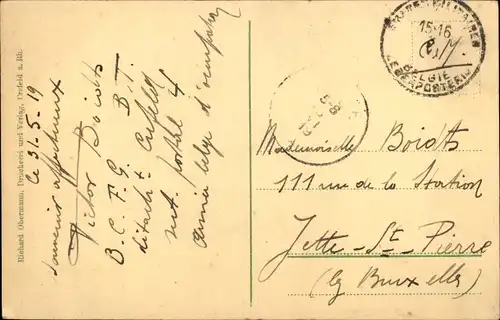 Richard Obermann, Druckerei und Verlag, Crefeld a. Rh.
ce 31-5-19
souvenir affectueux
Victor Boidts
B.C.F.G. D.T.
détach t Crefeld
mt. postal 4
Armée belge d'occupation
POSTES MILITAIRES
15-16
C.M.
BELGIE
LEGERPOSTERIJ
Mademoiselle Boidts
111 rue de la Station
Jette-St-Pierre
(lez Bruxelles)